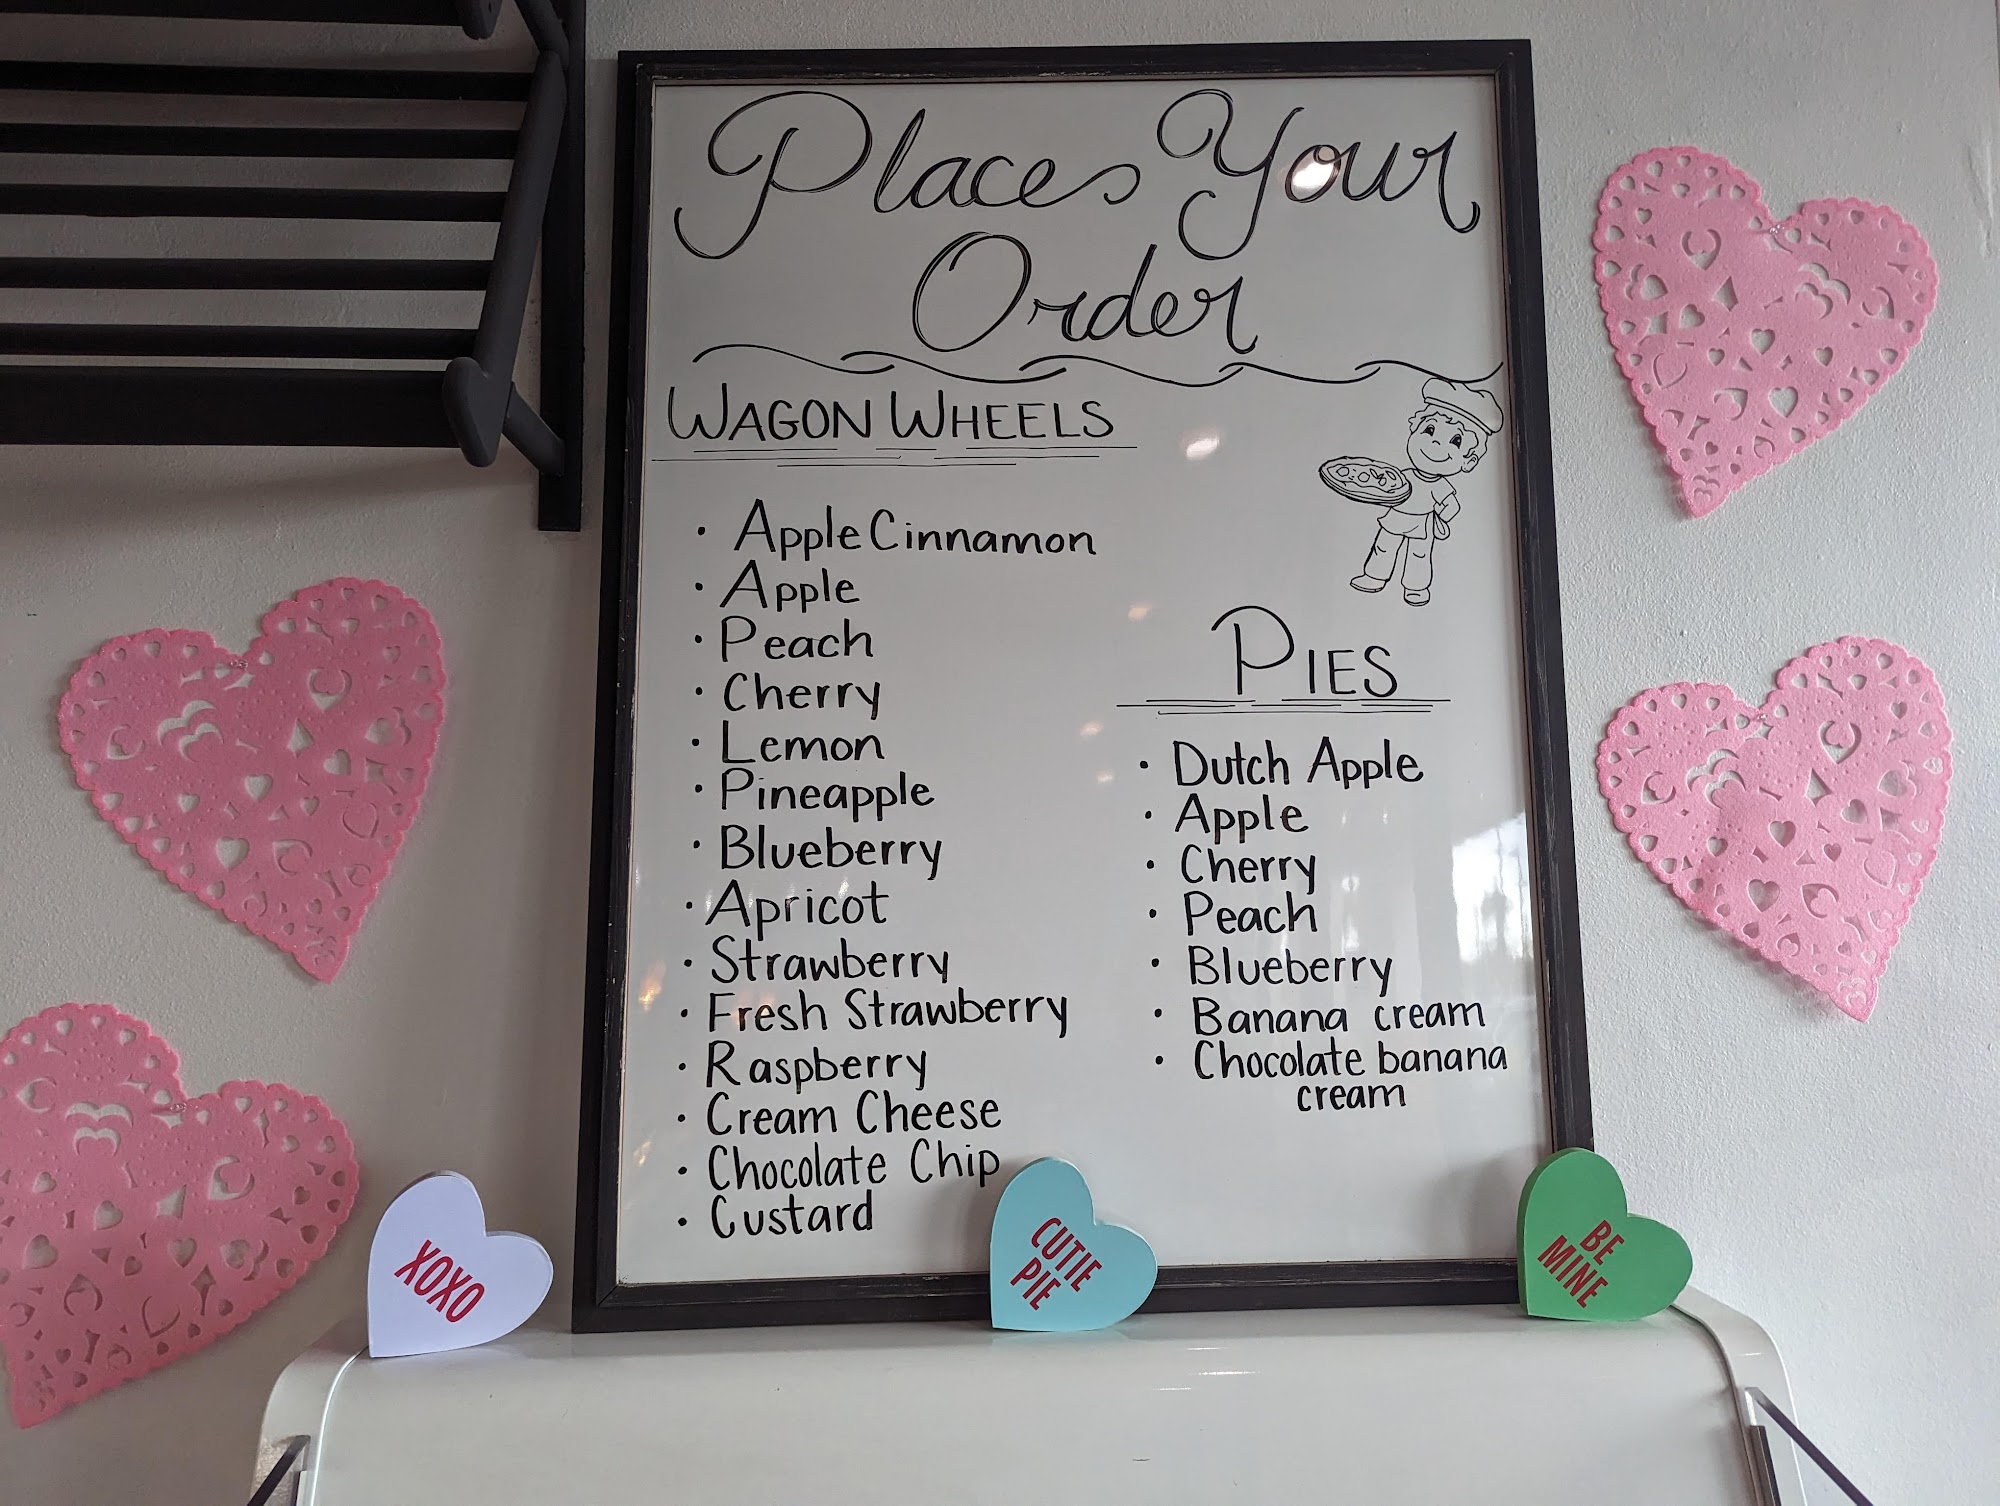 Places Your
Order
WAGON WHEELS
• Apple Cinnamon
• Apple
• Peach
• Cherry
• Lemon
• Pineapple
• Blueberry
• Apricot
• Strawberry
• Fresh Strawberry
• Raspberry
• Cream Cheese
• Chocolate Chip
• Custard
PIES
• Dutch Apple
• Apple
• Cherry
• Peach
• Blueberry
• Banana cream
• Chocolate banana
cream
XOXO
CUTIE
PIE
BE
MINE